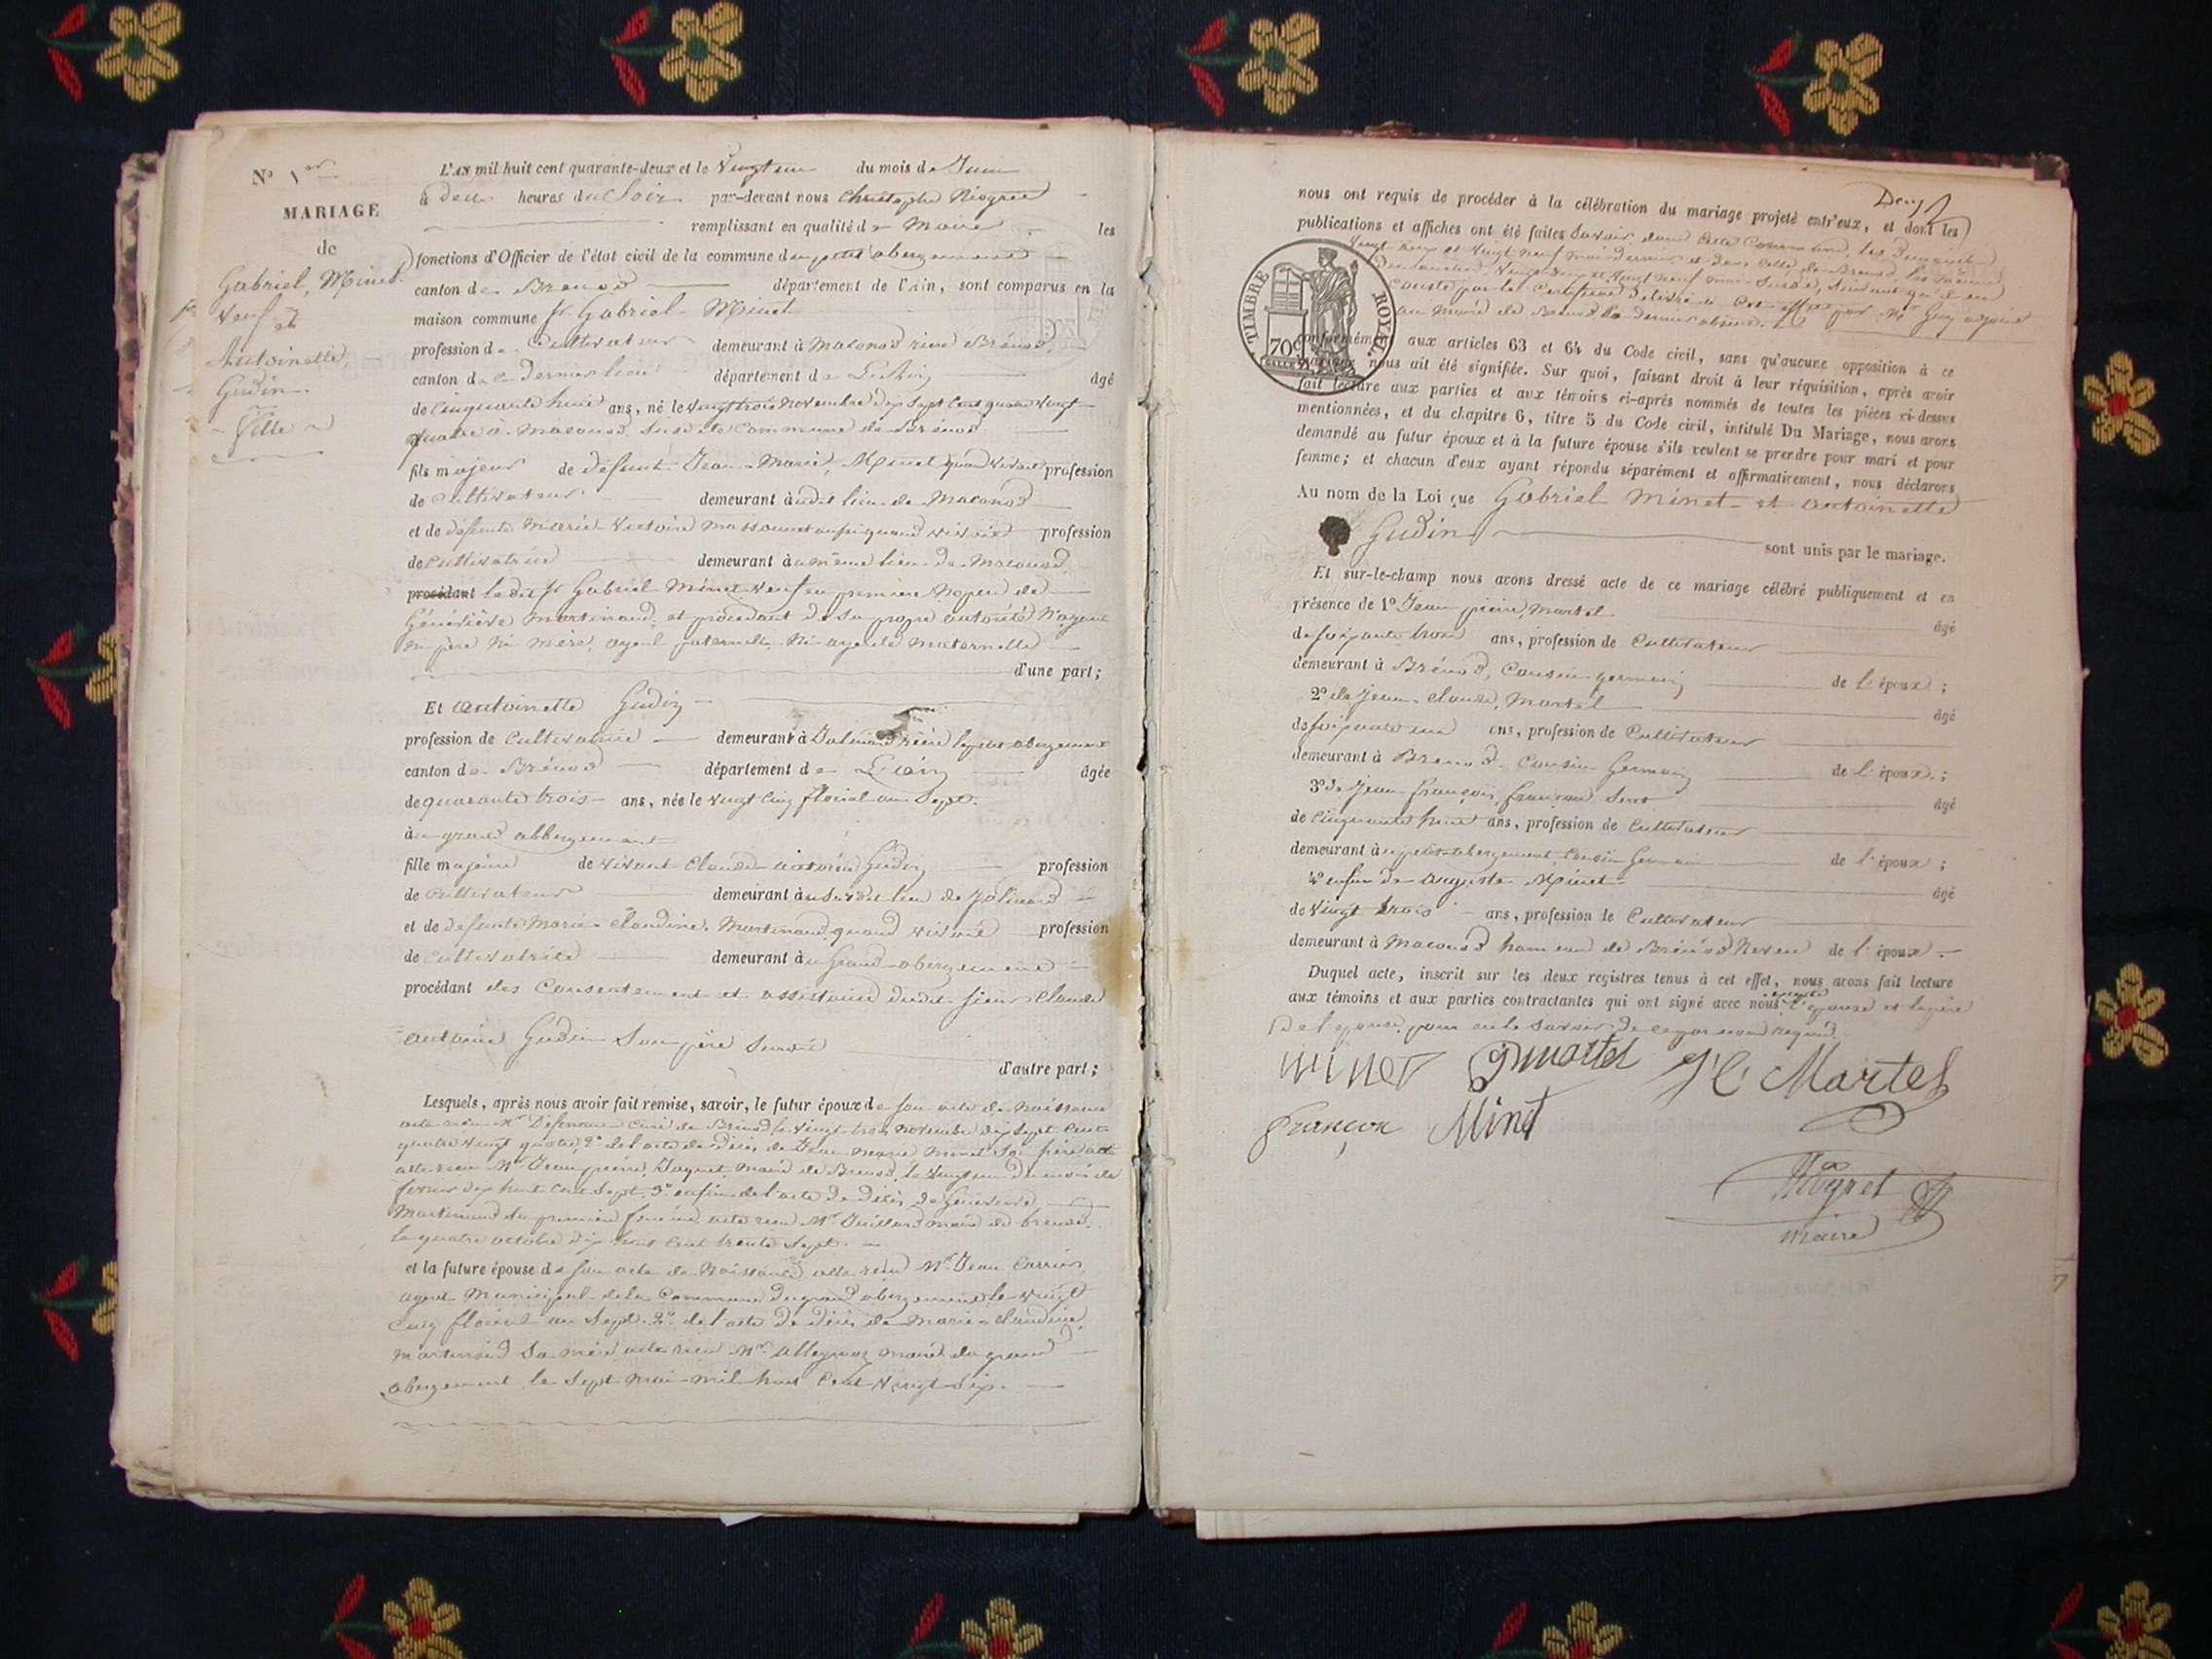 N° 1er
MARIAGE
de
Gabriel, Minet
Veuf et
Antoinette,
Gudin
Fille
L'AN mil huit cent quarante-deux et le Vingt un du mois de Juin
à deux heures du Soir par-devant nous Christophe
remplissant en qualité de Maire les
fonctions d'Officier de l'état civil de la commune du petit abergement
canton de Brenod département de l'Ain, sont comparus en la
maison commune Sr Gabriel Minet
profession de Cultivateur demeurant à Maconod rière Brénod,
canton de ce dernier lieu département de L'Ain âgé
de Cinquante huit ans, né le Vingt trois Novembre dix Sept Cent quatre Vingt
quatre à Maconod Susdite Commune de Brénod
fils majeur de défunt Jean-Marie, Minet quand vivait profession
de Cultivateur demeurant audit lieu de Maconod
et de défunte Marie Victoire aussi quand vivait profession
de Cultivatrice demeurant au même lieu de Maconod.
procédant le dit Sr Gabriel Minet Veuf en première Noces de
Géneviève Martinand, et procédant de Sa propre autorité N'ayant
ni père Ni mère, ayeul paternelle, Ni ayeule maternelle
d'une part;
Et Antoinette Gudin
profession de Cultivatrice demeurant à Jalinard rière le petit abergement
canton de Brénod département de L'Ain âgée
de quarante trois ans, née le Vingt Cinq floréal an Sept.
au grand abbergement
fille majeure de vivant Claude antoine Gudin profession
de Cultivateur demeurant au Susdit lieu de Jalinard
et de défunte Marie Claudine, Martinand, quand vivait profession
de Cultivatrice demeurant au Grand abergement
procédant des Consentement et assistance dudit Sieur Claude
antoine Gudin Son père
d'autre part;
Lesquels, après nous avoir fait remise, savoir, le futur époux de Son acte de Naissance
acte Curé de Brenod le Vingt trois Novembre dix Sept Cent
quatre Vingt quatre, 2° de l'acte de Décès de Jean Marie Minet Son père acte
Mr Jean pierre, Maire de Brenod, le Vingt un du mois de
fevrier dix huit Cent Sept, 3° enfin de l'acte de décès de Géneviève
Martinand Sa première femme acte Mr maire de brenod
le quatre octobre dix huit Cent trente Sept.
et la future épouse de Son acte de Naissance acte Mr Jean Carrier
agent Municipal de la Commune du grand abergement le Vingt
Cinq floréal an Sept. 2° de l'acte de décès de Marie Claudine,
Martinand Sa mère acte Mr maire du grand
abergement le Sept Mai Mil huit Cent Vingt Six.
Deux
nous ont requis de procéder à la célébration du mariage projeté entr'eux, et dont les
publications et affiches ont été faites Savoir dans Cette Commune, les Dimanches
Vingt deux et Vingt Neuf mai dernier et dans Celle de Brenod les mêmes
Dimanches Vingt deux et Vingt neuf mai Susdit, Suivant qu'il en
Conste par le Certificat Délivré à Cet effet par Mr Guy adjoint
au Maire de Brenod Ce dernier absent.
TIMBRE ROYAL
70c
conformément aux articles 63 et 64 du Code civil, sans qu'aucune opposition à ce
mariage nous ait été signifiée. Sur quoi, faisant droit à leur réquisition, après avoir
fait lecture aux parties et aux témoins ci-après nommés de toutes les pièces ci-dessus
mentionnées, et du chapitre 6, titre 5 du Code civil, intitulé Du Mariage, nous avons
demandé au futur époux et à la future épouse s'ils veulent se prendre pour mari et pour
femme; et chacun d'eux ayant répondu séparément et affirmativement, nous déclarons
Au nom de la Loi que Gabriel Minet et antoinette
Gudin
sont unis par le mariage.
Et sur-le-champ nous avons dressé acte de ce mariage célébré publiquement et en
présence de 1° Jean pierre, Martel âgé
de Soixante trois ans, profession de Cultivateur
demeurant à Brénod, Cousin germain de l'époux;
2° de Jean-Claude, Martel âgé
de Soixante un ans, profession de Cultivateur
demeurant à Brenod, Cousin Germain de l'époux;
3° de Jean françois, françon âgé
de Cinquante huit ans, profession de Cultivateur
demeurant au petit abergement Cousin Germain de l'époux;
4° enfin de Auguste Minet âgé
de Vingt trois ans, profession de Cultivateur
demeurant à Maconod hameau de Brénod Neveu de l'époux.
Duquel acte, inscrit sur les deux registres tenus à cet effet, nous avons fait lecture
aux témoins et aux parties contractantes qui ont signé avec nous excepté l'épouse et le père
De l'épouse, pour ne le Savoir de ce requis
Minet JPMartel JC Martel
françon Minet
maire